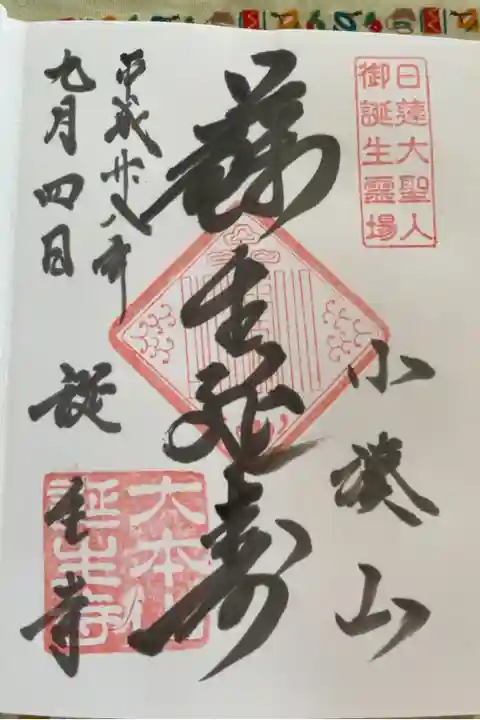 日蓮大聖人
御誕生霊場
小湊山
蘇生延寿
平成廿八年
九月四日
誕生寺
大本山
誕生寺